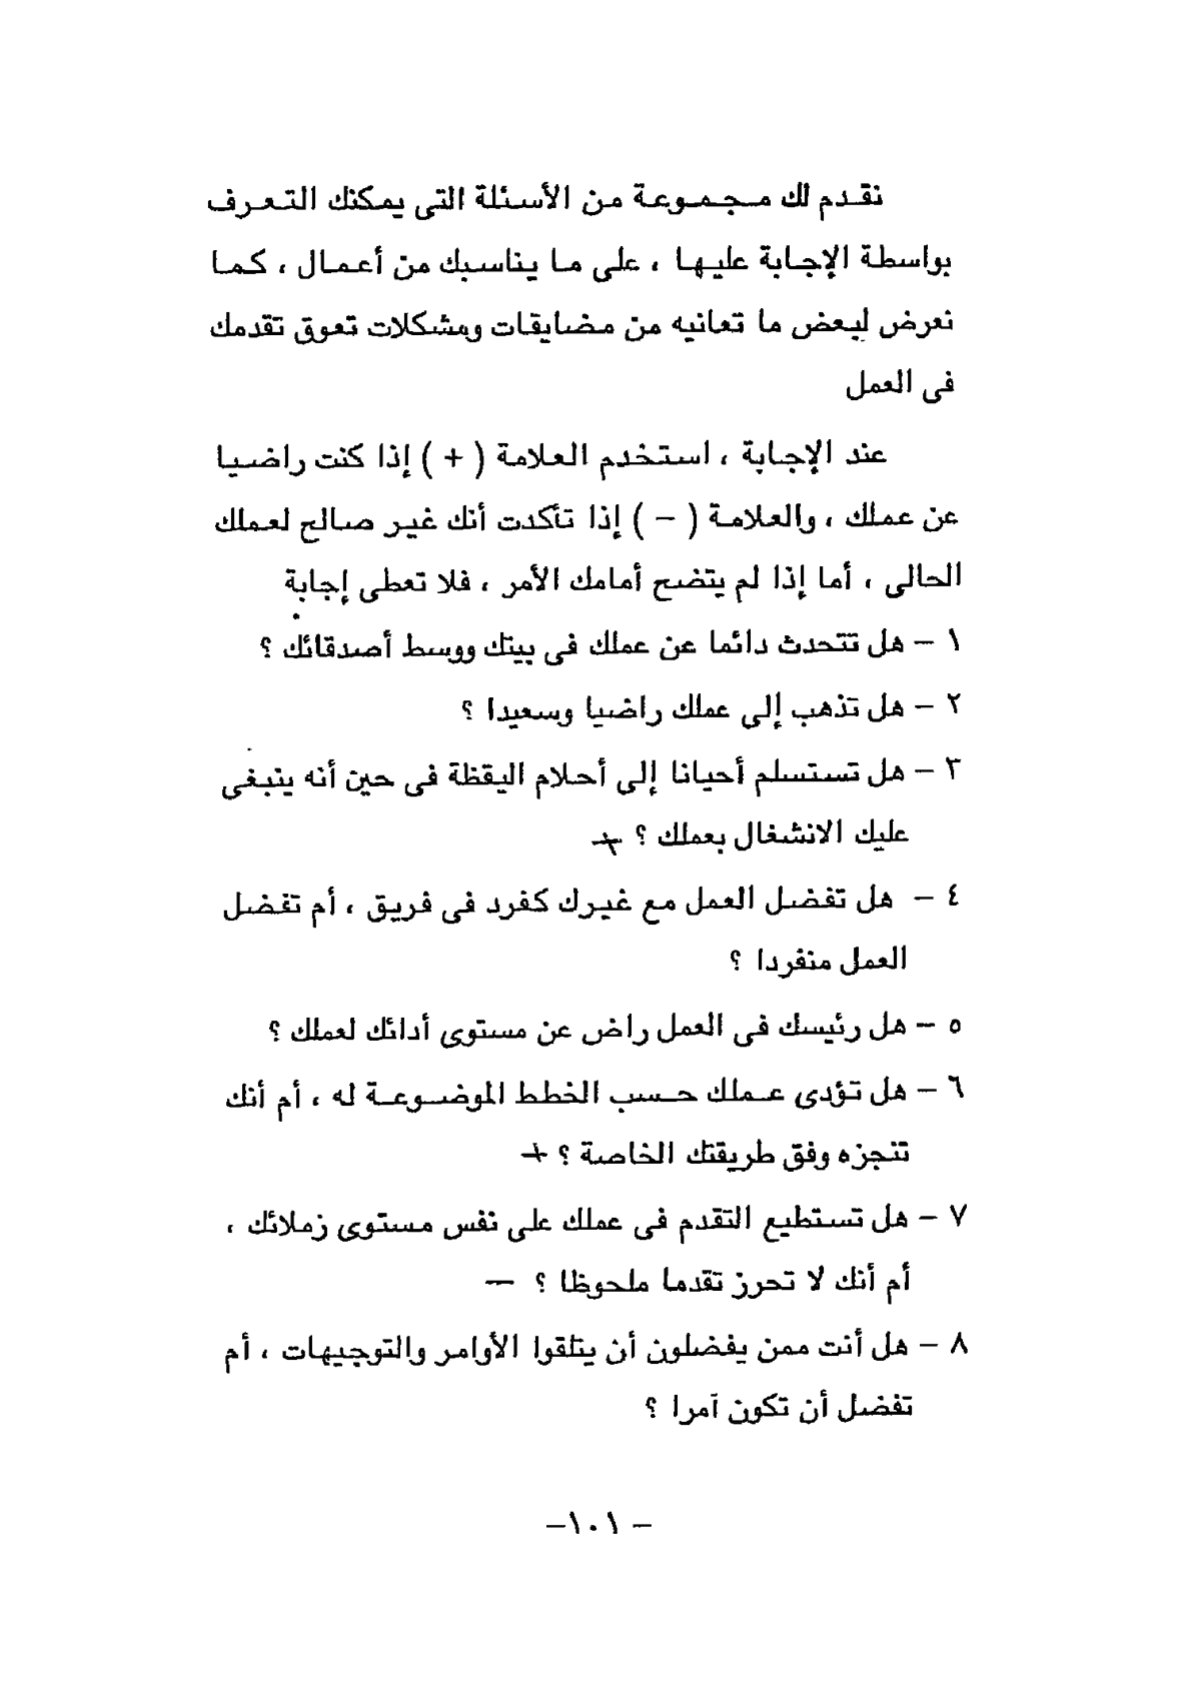 نقدم لك مجموعة من الأسئلة التى يمكنك التعرف
بواسطة الإجابة عليها ، على ما يناسبك من أعمال ، كما
نعرض لبعض ما تعانيه من مضايقات ومشكلات تعوق تقدمك
فى العمل
عند الإجابة ، استخدم العلامة ( + ) إذا كنت راضيا
عن عملك ، والعلامة ( – ) إذا تأكدت أنك غير صالح لعملك
الحالى ، أما إذا لم يتضح أمامك الأمر ، فلا تعطى إجابة
١ – هل تتحدث دائما عن عملك فى بيتك ووسط أصدقائك ؟
٢ – هل تذهب إلى عملك راضيا وسعيدا ؟
٣ – هل تستسلم أحيانا إلى أحلام اليقظة فى حين أنه ينبغى
عليك الانشغال بعملك ؟ +
٤ – هل تفضل العمل مع غيرك كفرد فى فريق ، أم تفضل
العمل منفردا ؟
٥ – هل رئيسك فى العمل راض عن مستوى أدائك لعملك ؟
٦ – هل تؤدى عملك حسب الخطط الموضوعة له ، أم أنك
تنجزه وفق طريقتك الخاصة ؟ +
٧ – هل تستطيع التقدم فى عملك على نفس مستوى زملائك ،
أم أنك لا تحرز تقدما ملحوظا ؟ —
٨ – هل أنت ممن يفضلون أن يتلقوا الأوامر والتوجيهات ، أم
تفضل أن تكون آمرا ؟
– ١٠١–